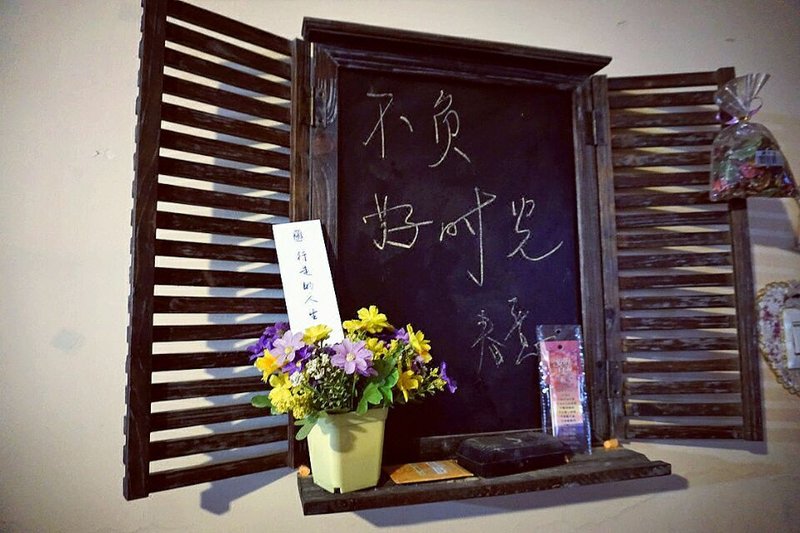 不负
好时光
春夏
行走的人生